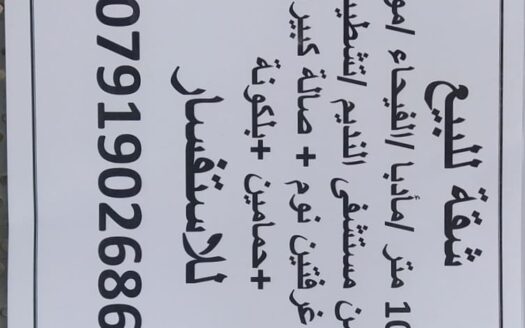 شقة للبيع
متر /مأدبا /الفيحاء
مستشفى النديم
غرفتين نوم + صالة
+حمامين +بلكونة
للاستفسار
0791902686